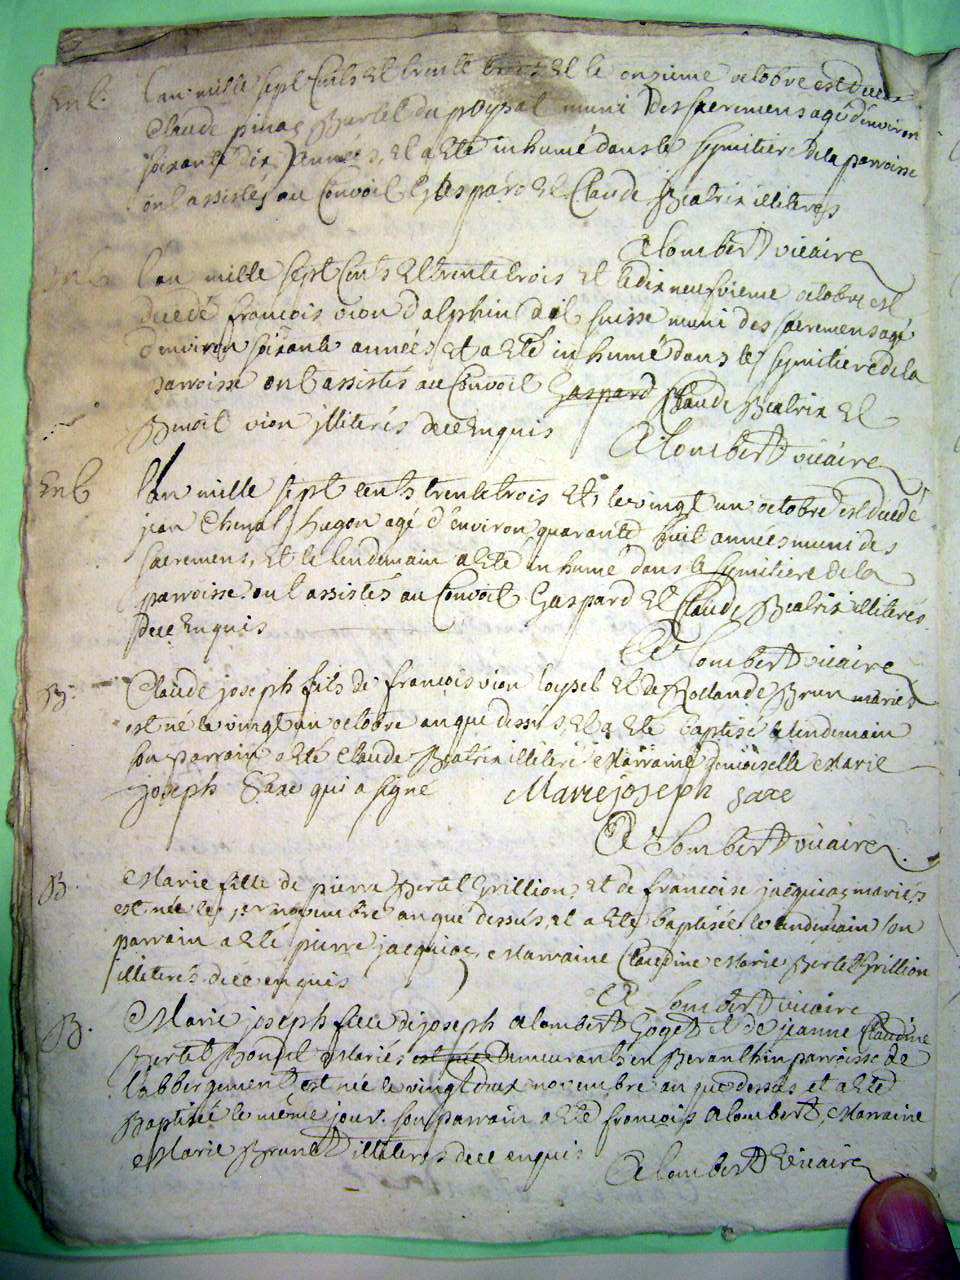 Enb. l'an mille sept cents et trente trois et le onzieme octobre est decede
Claude pinaz Bertet du poyzat muni des sacremens agé d'environ
soixante dix années, et a eté inhumé dans le symitiere de la parroisse
ont assistés au Convoit Gaspard et Claude Beatrix illiterés
Alombert vicaire
Enb l'an mille sept cents et trente trois et le dix neufvieme octobre est
decedé françois vion dalphin dit suisse muni des sacremens agé
d'environ soixante années et a eté inhumé dans le symitiere de la
parroisse ont assistés au Convoit Gaspard Claude Beatrix et
Benoit vion illiterés de ce enquis
Alombert vicaire
Enb l'an mille sept cents trente trois et le vingt un octobre est decedé
jean Chenal hugon agé d'environ quarante huit années muni des
sacremens, et le lendemain a eté inhumé dans le symitiere de la
parroisse ont assistés au Convoit Gaspard et Claude Beatrix illiterés
de ce enquis
Alombert vicaire
B. Claude joseph fils de françois vion loysel et de Rollande Brun mariés
est né le vingt un octobre an que dessus, et a eté baptisé le lendemain
son parrain a eté Claude Beatrix illiteré Marraine demoiselle Marie
joseph Saxe qui a signé Marie joseph saxe
Alombert vicaire
B. Marie fille de pierre Bertet Grillion, et de francoise jacquiaz mariés
est née le 1er novembre an que dessus, et a eté baptisée le lendemain son
parrain a eté pierre jacquiaz Marraine Claudine Marie Bertet Grillion
illiterés de ce enquis
Alombert vicaire
B. Marie joseph fille de joseph Alombert Goget et de jeanne Claudine
Bertet Bondet Mariés est née demeurants en Beraulthin parroisse de
l'abbergement est née le vingt deux novembre an que dessus et a eté
Baptisée le même jour. son parrain a eté françois Alombert, Marraine
Marie Brunet illiterés de ce enquis
Alombert Vicaire